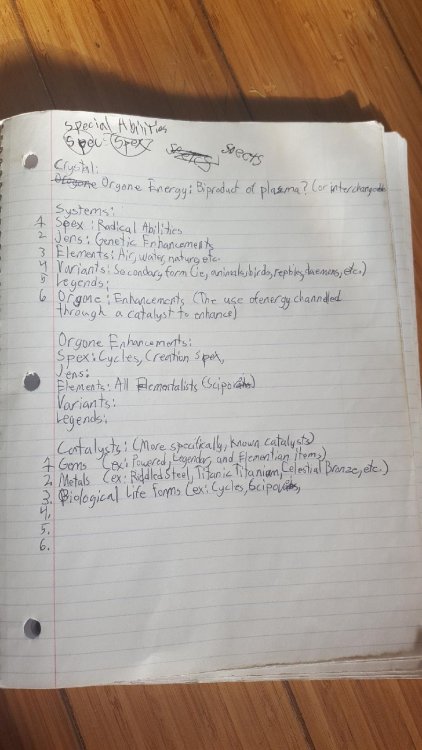 Special Abilities
Spev Spex Spects
Crystal:
Orgone Energy: Biproduct of plasma? (or interchangeable
Systems:
1 Spex: Radical Abilities
2 Jens: Genetic Enhancements
3 Elements: Air, water, nature, etc.
4 Variants: Secondary form (ie, animals, birds, reptiles, daemons, etc.)
5 Legends:
6 Orgone: Enhancements (The use of energy channdled
through a catalyst to enhance)
Orgone Enhancements:
Spex: Cycles, Creation Spex,
Jens:
Elements: All Elementalists
Variants:
Legends:
Catalysts: (More specifically, known catalysts)
1. Gems (ex: Powered, Legendar, and Elemention items)
2. Metals (ex: Riddled Steel, Titanic Titanium, Celestial Bronze, etc.)
3. Biological Life forms (ex: Cycles,
4.
5.
6.